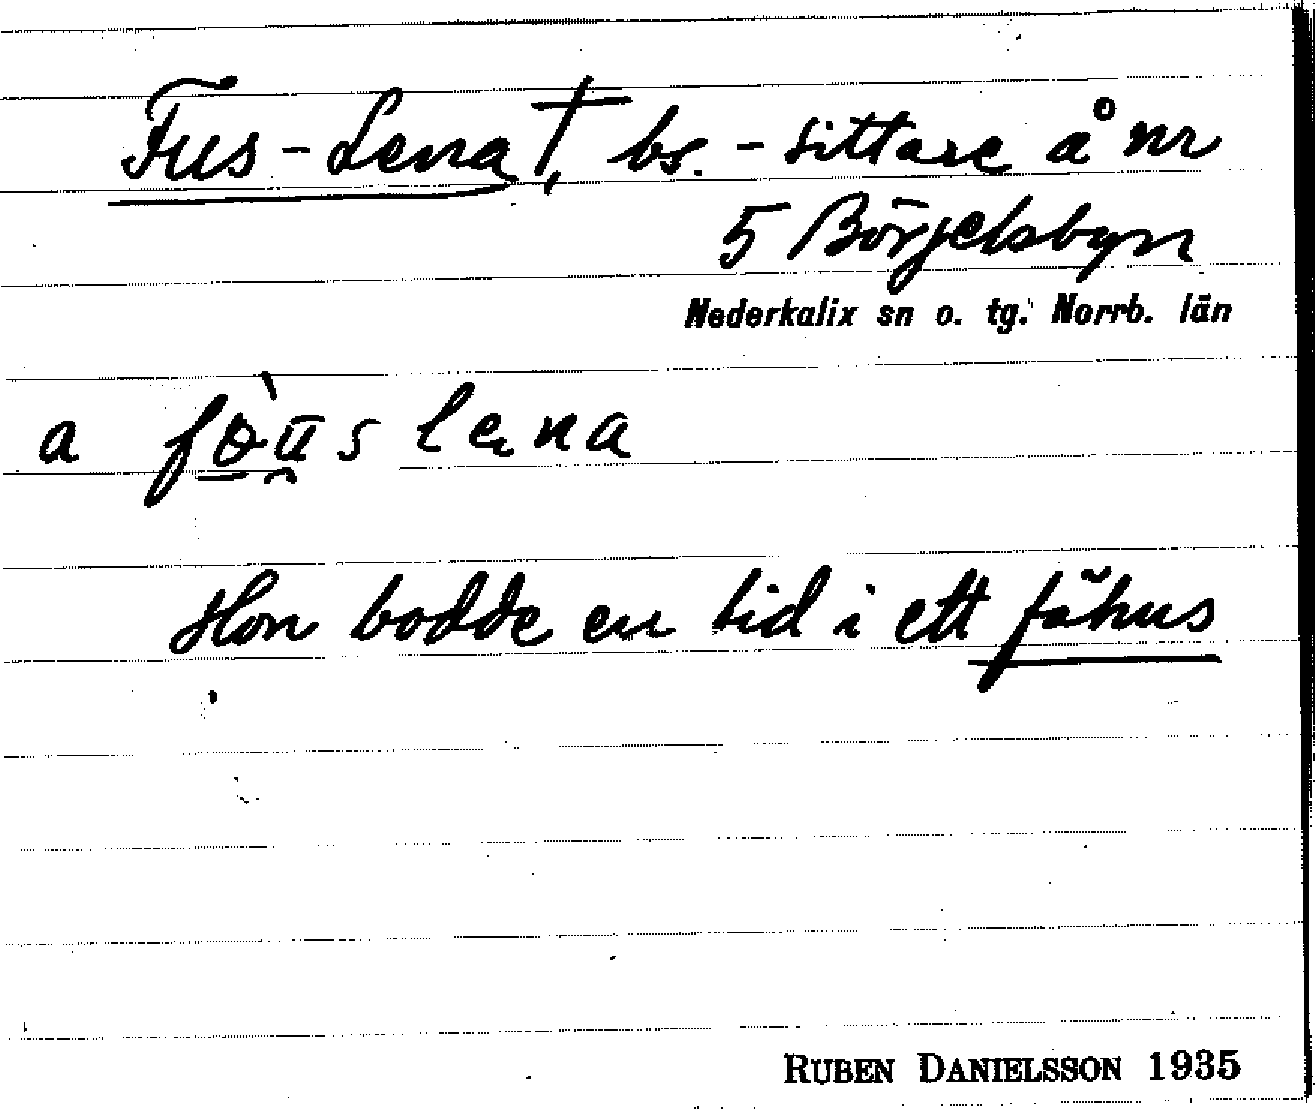 Fus-Lena †, bs.-sittare å nr
5 Börjelsbyn
Nederkalix sn o. tg. Norrb. län
a fɵ̀u̯s lena
Hon bodde en tid i ett fähus
RUBEN DANIELSSON 1935